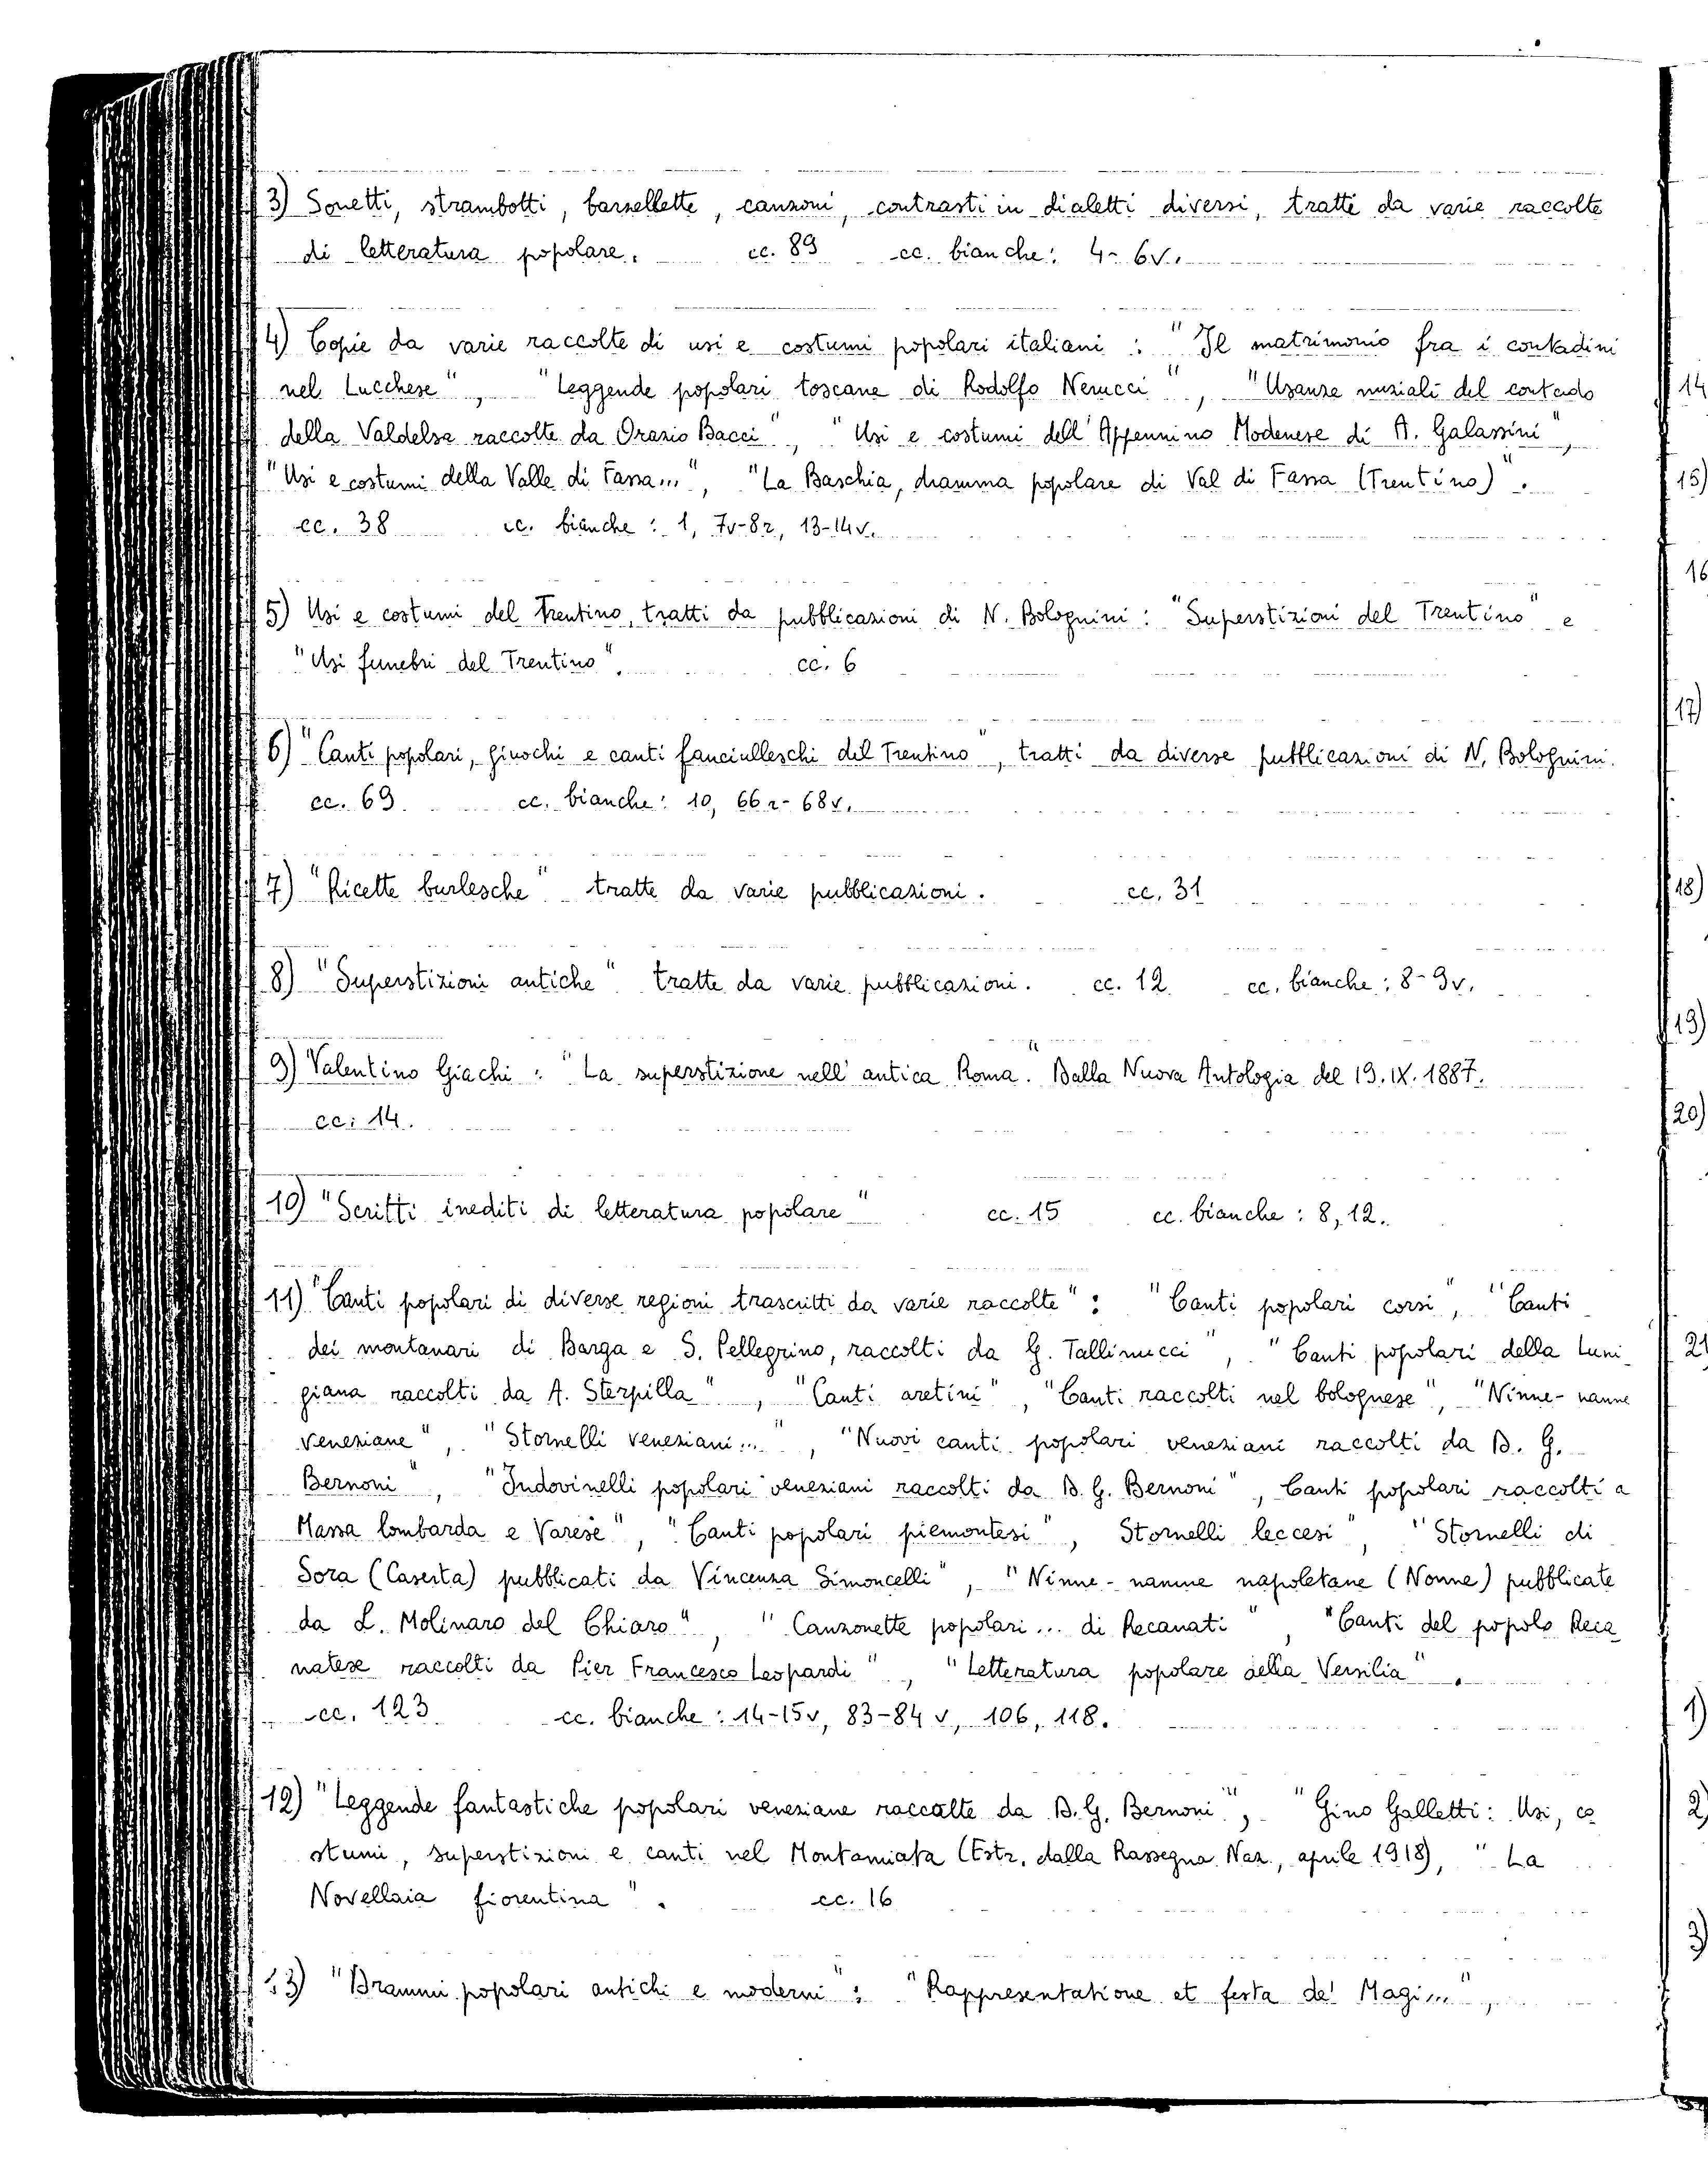 3) Sonetti, strambotti, barzellette, canzoni, contrasti in dialetti diversi, tratti da varie raccolte
di letteratura popolare. cc. 89 cc. bianche: 4-6v.
4) Copie da varie raccolte di usi e costumi popolari italiani : "Il matrimonio fra i contadini
nel Lucchese", "Leggende popolari toscane di Rodolfo Nerucci", "Usanze nuziali del contado
della Valdelsa raccolte da Orazio Bacci", "Usi e costumi dell'Appennino Modenese di A. Galassini",
"Usi e costumi della Valle di Fassa...", "La Baschia, dramma popolare di Val di Fassa (Trentino)".
cc. 38 cc. bianche : 1, 7v-8r, 13-14v.
5) Usi e costumi del Trentino, tratti da pubblicazioni di N. Bolognini : "Superstizioni del Trentino" e
"Usi funebri del Trentino". cc. 6
6) "Canti popolari, giuochi e canti fanciulleschi del Trentino", tratti da diverse pubblicazioni di N. Bolognini.
cc. 69 cc. bianche: 10, 66r-68v.
7) "Ricette burlesche" tratte da varie pubblicazioni. cc. 31
8) "Superstizioni antiche" tratte da varie pubblicazioni. cc. 12 cc. bianche : 8-9v.
9) Valentino Giachi : "La superstizione nell'antica Roma". Dalla Nuova Antologia del 19.IX.1887.
cc. 14.
10) "Scritti inediti di letteratura popolare" cc. 15 cc. bianche : 8, 12.
11) "Canti popolari di diverse regioni trascritti da varie raccolte" : "Canti popolari corsi", "Canti
dei montanari di Barga e S. Pellegrino, raccolti da G. Tallinucci", "Canti popolari della Luni-
giana raccolti da A. Sterpilla", "Canti aretini", "Canti raccolti nel bolognese", "Ninne-nanne
veneziane", "Stornelli veneziani...", "Nuovi canti popolari veneziani raccolti da D. G.
Bernoni", "Indovinelli popolari veneziani raccolti da D. G. Bernoni", Canti popolari raccolti a
Massa lombarda e Varese", "Canti popolari piemontesi", Stornelli leccesi", "Stornelli di
Sora (Caserta) pubblicati da Vincenza Simoncelli", "Ninne-nanne napoletane (Nonne) pubblicate
da L. Molinaro del Chiaro", "Canzonette popolari... di Recanati", "Canti del popolo Reca-
natese raccolti da Pier Francesco Leopardi", "Letteratura popolare della Versilia".
cc. 123 cc. bianche : 14-15v, 83-84v, 106, 118.
12) "Leggende fantastiche popolari veneziane raccolte da D. G. Bernoni", "Gino Galletti : Usi, co-
stumi, superstizioni e canti nel Montamiata (Estr. dalla Rassegna Naz., aprile 1918), "La
Novellaia fiorentina". cc. 16
13) "Drammi popolari antichi e moderni" : "Rappresentatione et festa de' Magi...",
14
15)
16
17)
18)
19)
20)
21
1)
2)
3)